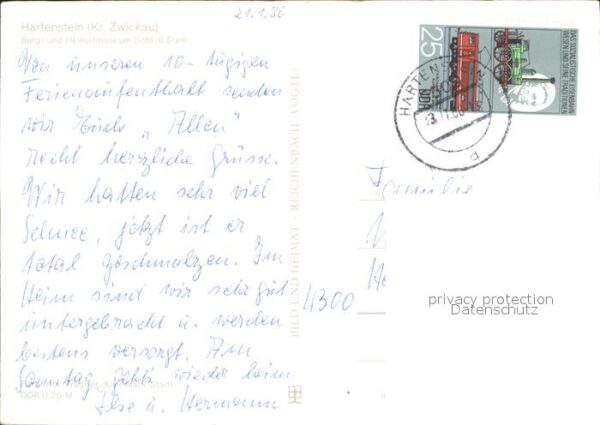 21.1.86
Hartenstein (Kr. Zwickau)
Burg- und Heimatmuseum Schloß Stein
Von unseren 10-tägigen
Ferienaufenthalt senden
wir Euch „Allen"
recht herzliche Grüsse.
Wir hatten sehr viel
Schnee, jetzt ist er
total geschmolzen. Im
Heim sind wir sehr gut
untergebracht u. werden
bestens versorgt. Am
Sonntag geht's wieder heim
Ilse u. Hermann
DDR 0,20 M
BILD UND HEIMAT REICHENBACH (VOGTL)
25
DDR
DAS SOZIALISTISCHE EISENBAHN-
WESEN UND SEINE TRADITIONEN
HARTENSTEIN
Familie
4300
privacy protection
Datenschutz